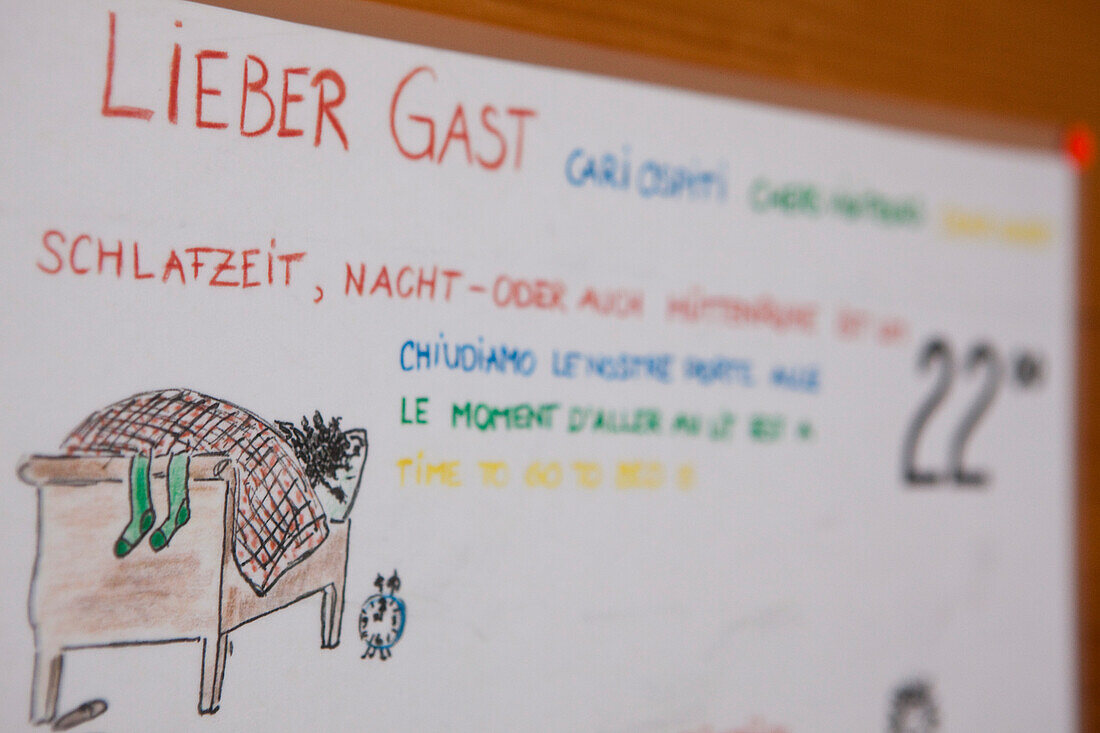 LiEBER GAST CARI OSPITI
SCHLAFZEIT, NACHT- ODER AUCH HÜTTENRUHE IST UM 22°°
CHiUDiAMO LE NOSTRE PORTE ALLE
LE MOMENT D'ALLER AU LIT EST
TIME TO GO TO BED !!